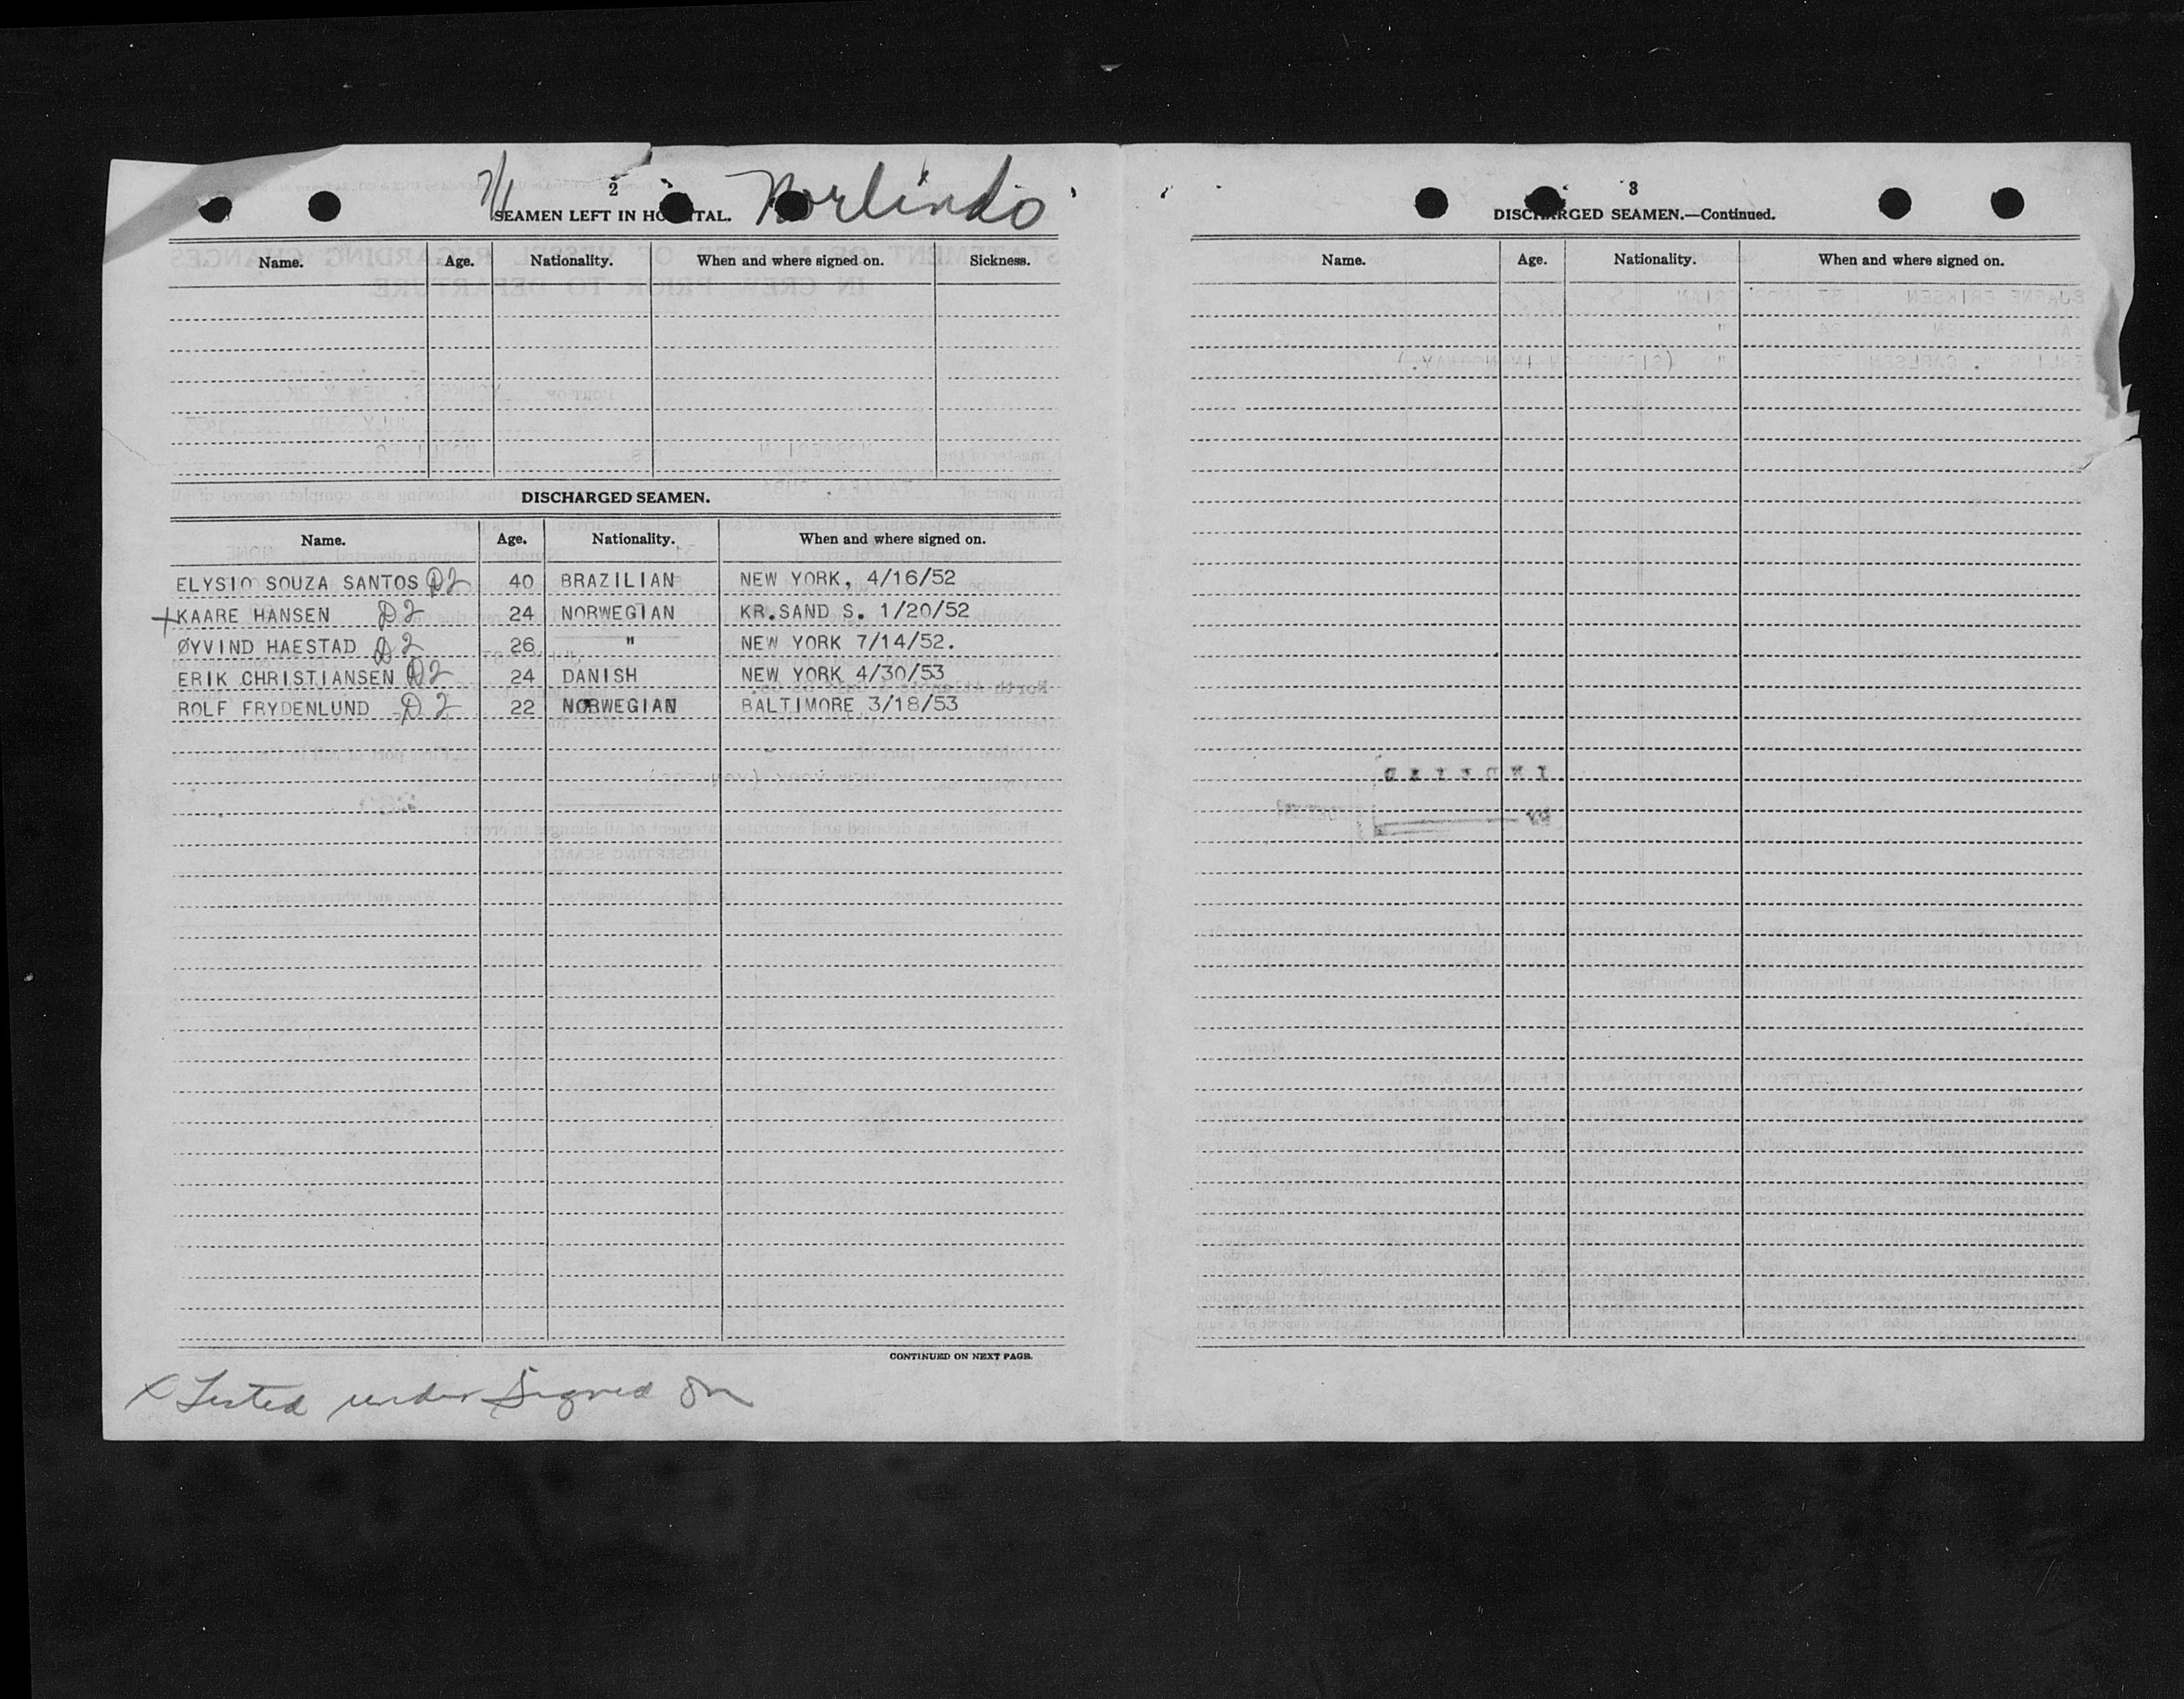 7/1 Norlindo
2
SEAMEN LEFT IN HOSPITAL.
Name. Age. Nationality. When and where signed on. Sickness.
DISCHARGED SEAMEN.
Name. Age. Nationality. When and where signed on.
ELYSIO SOUZA SANTOS D2 40 BRAZILIAN NEW YORK, 4/16/52
+ KAARE HANSEN D2 24 NORWEGIAN KR.SAND S. 1/20/52
ØYVIND HAESTAD D2 26 " NEW YORK 7/14/52.
ERIK CHRISTIANSEN D2 24 DANISH NEW YORK 4/30/53
ROLF FRYDENLUND D2 22 NORWEGIAN BALTIMORE 3/18/53
CONTINUED ON NEXT PAGE.
x Listed under Signed on
3
DISCHARGED SEAMEN.—Continued.
Name. Age. Nationality. When and where signed on.